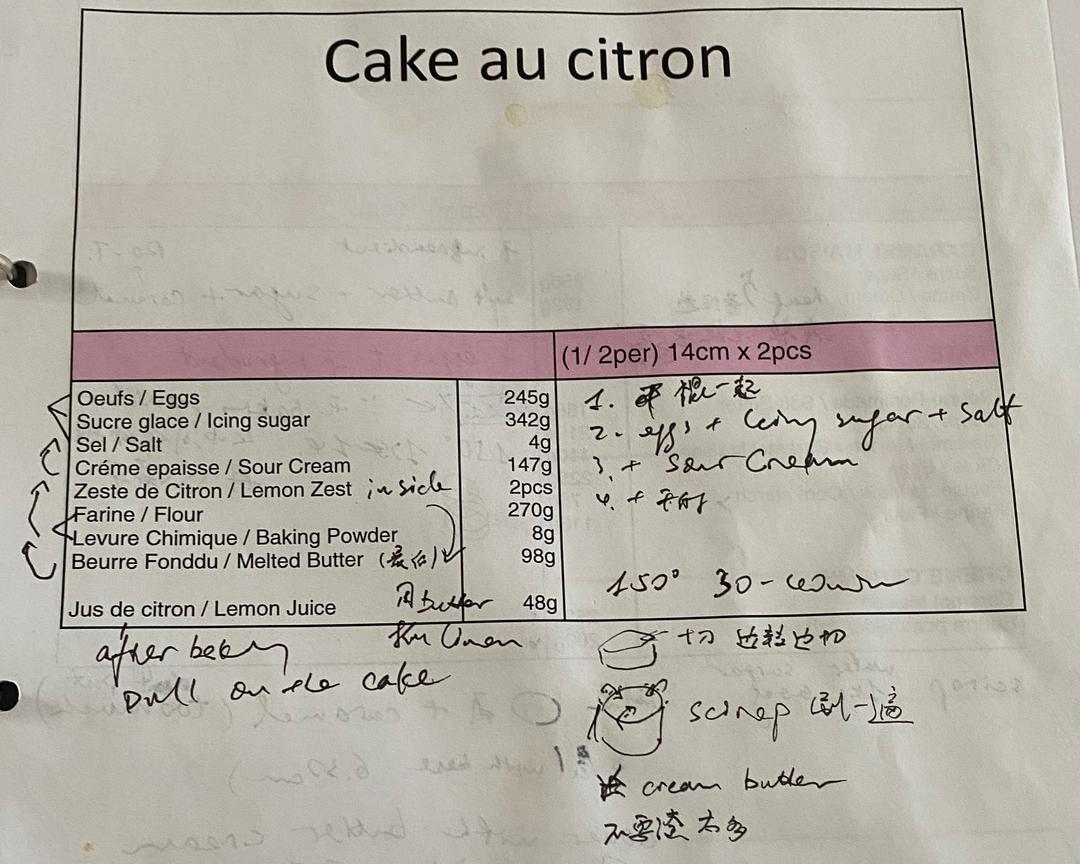 Cake au citron
(1/ 2per) 14cm x 2pcs
Oeufs / Eggs 245g
Sucre glace / Icing sugar 342g
Sel / Salt 4g
Créme epaisse / Sour Cream 147g
Zeste de Citron / Lemon Zest inside 2pcs
Farine / Flour 270g
Levure Chimique / Baking Powder 8g
Beurre Fonddu / Melted Butter (最后) 98g
Jus de citron / Lemon Juice 48g
1. 一起
2. eggs + icing sugar + salt
3. + Sour Cream
4. +
150° 30-40min
用 butter
after baking
pull on the cake
切 边转边切
一遍
cream butter
不要 太多